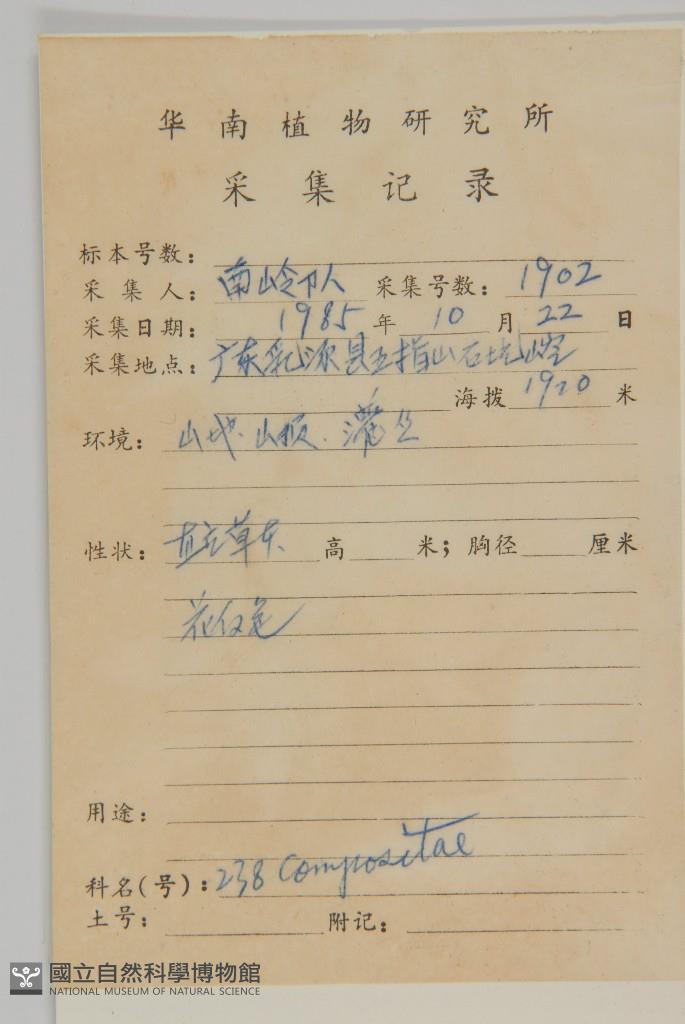 华南植物研究所
采集记录
标本号数：
采集人：南岭队人 采集号数：1902
采集日期：1985 年 10 月 22 日
采集地点：广东乳源县五指山石坑崆
海拨 1920 米
环境：山地.山坡.灌丛
性状：直立草本 高 米；胸径 厘米
花仅见
用途：
科名(号)：238 Compositae
土号： 附记：
國立自然科學博物館
NATIONAL MUSEUM OF NATURAL SCIENCE